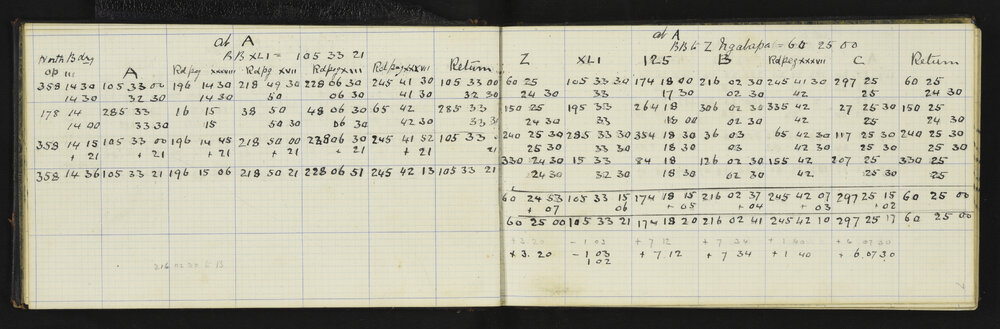 at A
BB XLI = 105 33 21
North Bdry
op III A Rdpeg XXXVIII Rdpg XVII Rdpeg XIII Rdpeg XXXVII Return
358 14 30 105 33 00 196 14 30 218 49 30 228 06 30 245 41 30 105 33 00
14 30 32 30 14 30 50 06 30 41 30 32 30
178 14 285 33 16 15 38 50 48 06 30 65 42 285 33
14 00 33 30 15 50 30 06 30 42 30 33 30
358 14 15 105 33 00 196 14 45 218 50 00 228 06 30 245 41 52 105 33
+ 21 + 21 + 21 + 21 + 21 + 21 21
358 14 36 105 33 21 196 15 06 218 50 21 228 06 51 245 42 13 105 33 21
216 02
at A
BB to Z Ngatapa = 60 25 00
Z XLI 125 B Rdpeg XXXVII C Return
60 25 105 33 30 174 18 00 216 02 30 245 41 30 297 25 60 25
24 30 33 17 30 02 30 42 25 24 30
150 25 195 33 264 18 306 02 30 335 42 27 25 30 150 25
24 30 33 18 00 02 30 42 25 24 30
240 25 30 285 33 30 354 18 30 36 03 65 42 30 117 25 30 240 25 30
25 30 33 18 30 03 42 30 25 30 25 30
330 24 30 15 33 84 18 126 02 30 155 42 207 25 330 25
24 30 32 30 18 30 02 30 42 25 30 25
60 24 53 105 33 15 174 18 15 216 02 37 245 42 07 297 25 15 60 25 00
+ 07 06 + 05 + 04 + 03 + 02
60 25 00 105 33 21 174 18 20 216 02 41 245 42 10 297 25 17 60 25 00
+ 3.20 - 1 03 + 7 12 + 7 34 + 1 40 + 6 07 30
+ 3.20 - 1 03 + 7 12 + 7 34 + 1 40 + 6.07 30
1 02